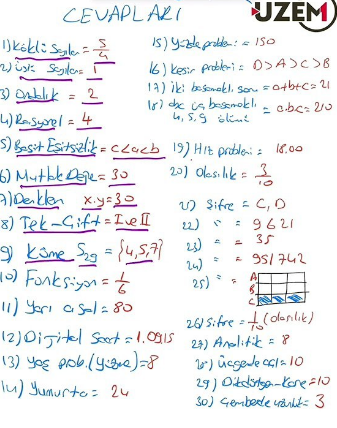 CEVAPLARI
UZEM
1) Köklü Sayılar = 5/4
2) Üslü Sayılar = 1
3) Ardışıklık = 2
4) Rasyonel = 4
5) Basit Eşitsizlik = c<a<b
6) Mutlak Değer = 30
7) Denklem x.y = 30
8) Tek-Çift = I ve II
9) Küme S29 = {4,5,7}
10) Fonksiyon = 1/6
11) Yarı asal = 80
12) Dijital Saat = 1.0915
13) yaş prob. (yüzme) = 8
14) Yumurta = 24
15) Yüzde problemi = 150
16) Kesir problemi: D>A>C>B
17) iki basamaklı sayı = a+b+c = 21
18) abc üç basamaklı = a.b.c = 210
4, 5, 9
19) Hız problemi = 18.00
20) Olasılık = 3/10
21) Şifre = C, D
22) " = 9621
23) " = 35
24) " = 951742
25) " =
A
B
C
26) Şifre = 1/10 (olasılık)
27) Analitik = 8
28) Üçgende açı = 10
29) Dikdörtgen-Kare = 10
30) Çemberde uzunluk = 3